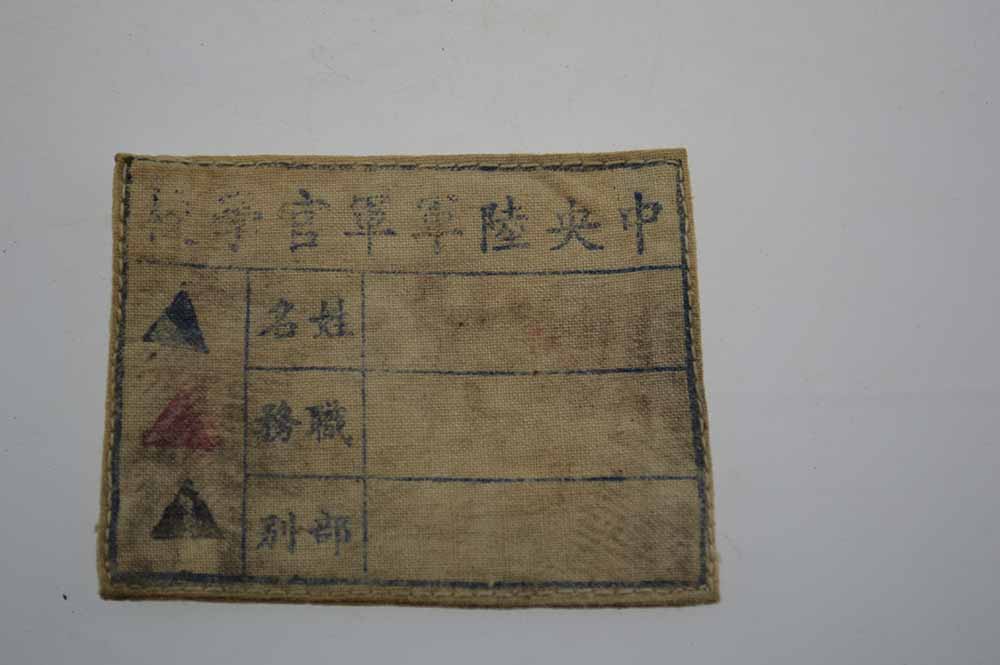 中央陸軍軍官學校
姓名
職務
部別